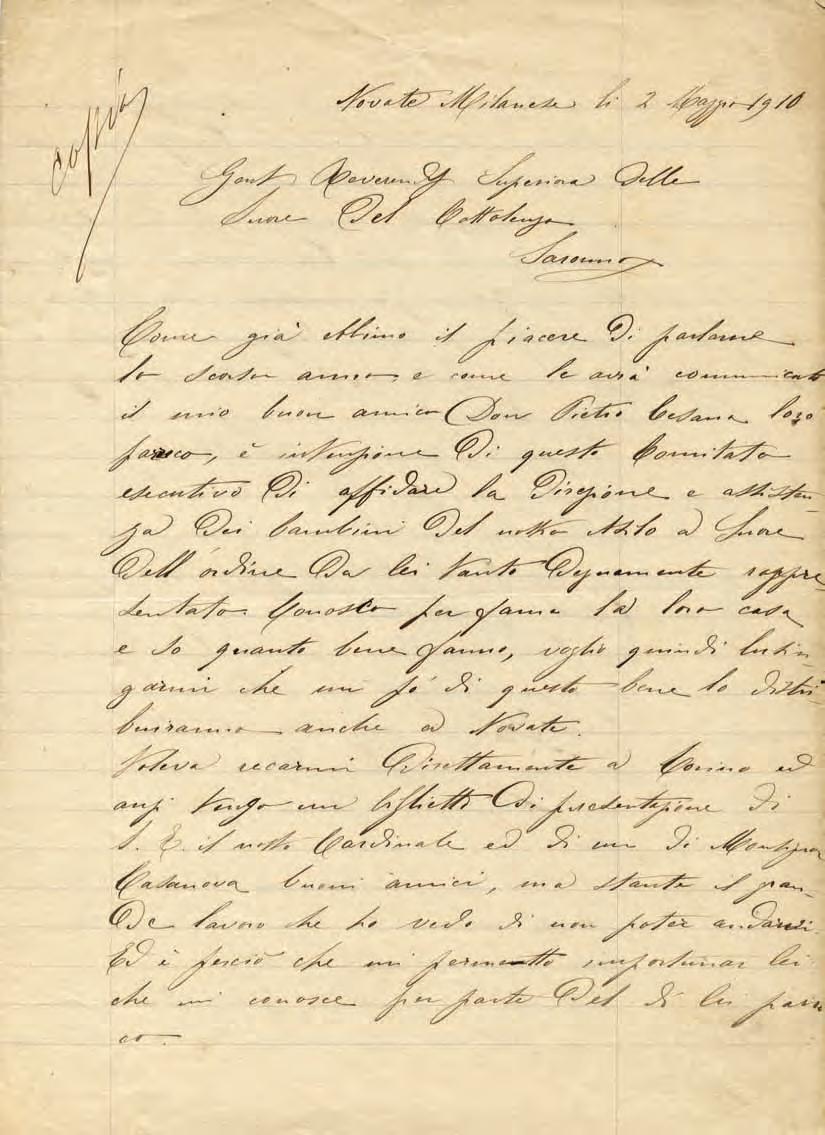 copia
Novate Milanese li 2 Maggio 1910
Gent Reverend Superiora delle
Suore Del Cottolengo
Saronno
Come già ebbimo il piacere Di parlarne
lo scorso anno, e come le avrà comunicato
il mio buon amico Don Pietro Cesana loro
parroco, è intenzione Di questo Comitato
esecutivo Di affidare la Direzione e assisten-
za Dei bambini Del nostro Asilo a Suore
Dell'ordine Da lei tanto Degnamente rappre-
sentato. Conosco per fama la loro casa
e so quanto bene fanno, voglio quindi lusin-
garmi che un pó di questo bene lo distri-
buiranno anche a Novate.
Voleva recarmi Direttamente a Torino ed
anzi tengo un biglietto Di presentazione di
S. E. il nostro Cardinale ed di un di Monsignor
Casanova buoni amici, ma stante il gran-
De lavoro che ho vedo di non poter andarvi.
Ed è perciò che mi permetto importunar lei
che mi conosce per parte Del di lei parro
co.